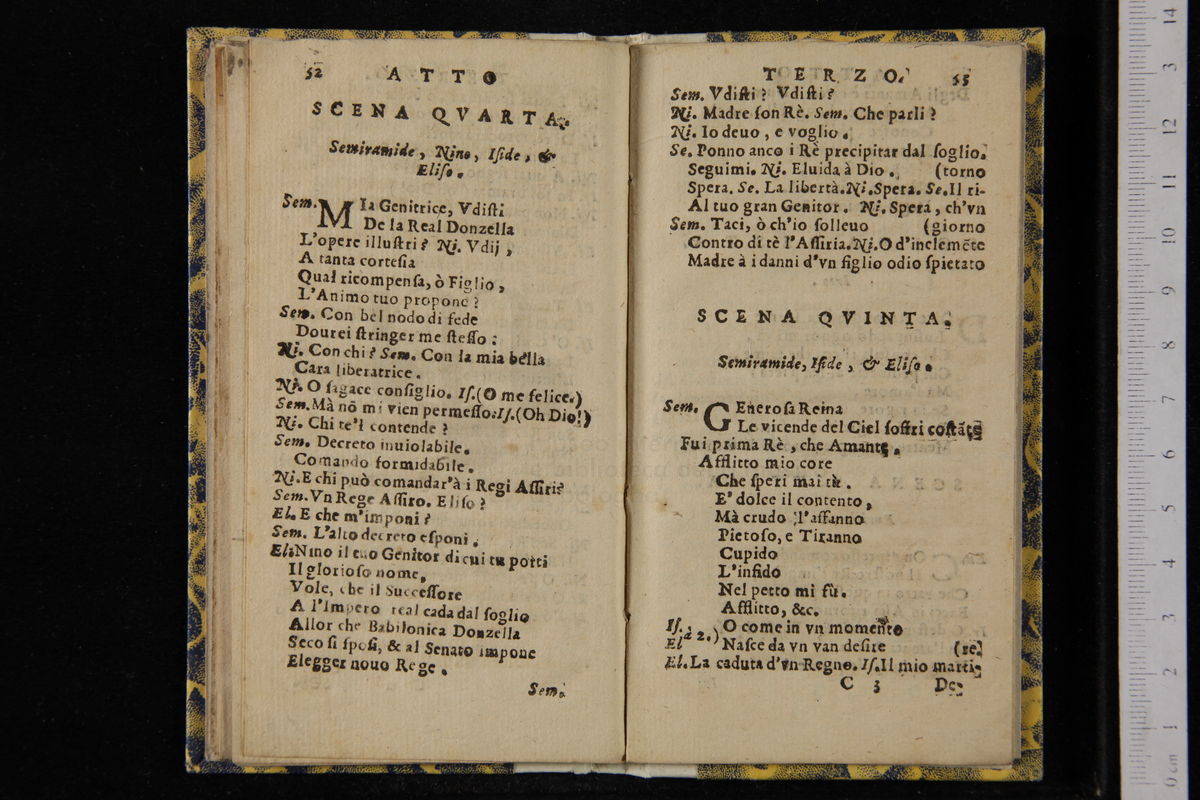 52 ATTO
SCENA QVARTA.
Semiramide, Nino, Iſide, &
Eliſo.
Sem. MIa Genitrice, Vdiſti
De la Real Donzella
L'opere illuſtri? Ni. Vdij,
A tanta corteſia
Qual ricompenſa, ò Figlio,
L'Animo tuo propone?
Sem. Con bel nodo di fede
Dourei ſtringer me ſteſſo:
Ni. Con chi? Sem. Con la mia bella
Cara liberatrice.
Ni. O ſagace conſiglio. Iſ.(O me felice.)
Sem. Mà nō mi vien permeſſo: Iſ.(Oh Dio!)
Ni. Chi te'l contende?
Sem. Decreto inuiolabile.
Comando formidabile.
Ni. E chi può comandar'à i Regi Aſſiri?
Sem. Vn Rege Aſſiro. Eliſo?
El. E che m'imponi?
Sem. L'alto decreto eſponi.
El. Nino il tuo Genitor di cui tu porti
Il glorioſo nome,
Vole, che il Succeſſore
A l'Impero real cada dal ſoglio
Allor che Babilonica Donzella
Seco ſi ſpoſi, & al Senato impone
Elegger nouo Rege.
Sem.
TERZO. 55
Sem. Vdiſti? Vdiſti?
Ni. Madre ſon Rè. Sem. Che parli?
Ni. Io deuo, e voglio.
Se. Ponno anco i Rè precipitar dal ſoglio.
Seguimi. Ni. Eluida à Dio. (torno
Spera. Se. La libertà. Ni. Spera. Se. Il ri-
Al tuo gran Genitor. Ni. Spera, ch'vn
Sem. Taci, ò ch'io ſolleuo (giorno
Contro di tè l'Aſſiria. Ni. O d'inclemēte
Madre à i danni d'vn figlio odio ſpietato
SCENA QVINTA.
Semiramide, Iſide, & Eliſo.
Sem. GEneroſa Reina
Le vicende del Ciel ſoffri coſtāte
Fui prima Rè, che Amante.
Afflitto mio core
Che ſperi mai tù.
E' dolce il contento,
Mà crudo l'affanno
Pietoſo, e Tiranno
Cupido
L'infido
Nel petto mi fù.
Afflitto, &c.
Iſ. O come in vn momento
El à 2.) Naſce da vn van deſire (re.
El. La caduta d'vn Regno. Iſ. Il mio marti-
C 3 De-